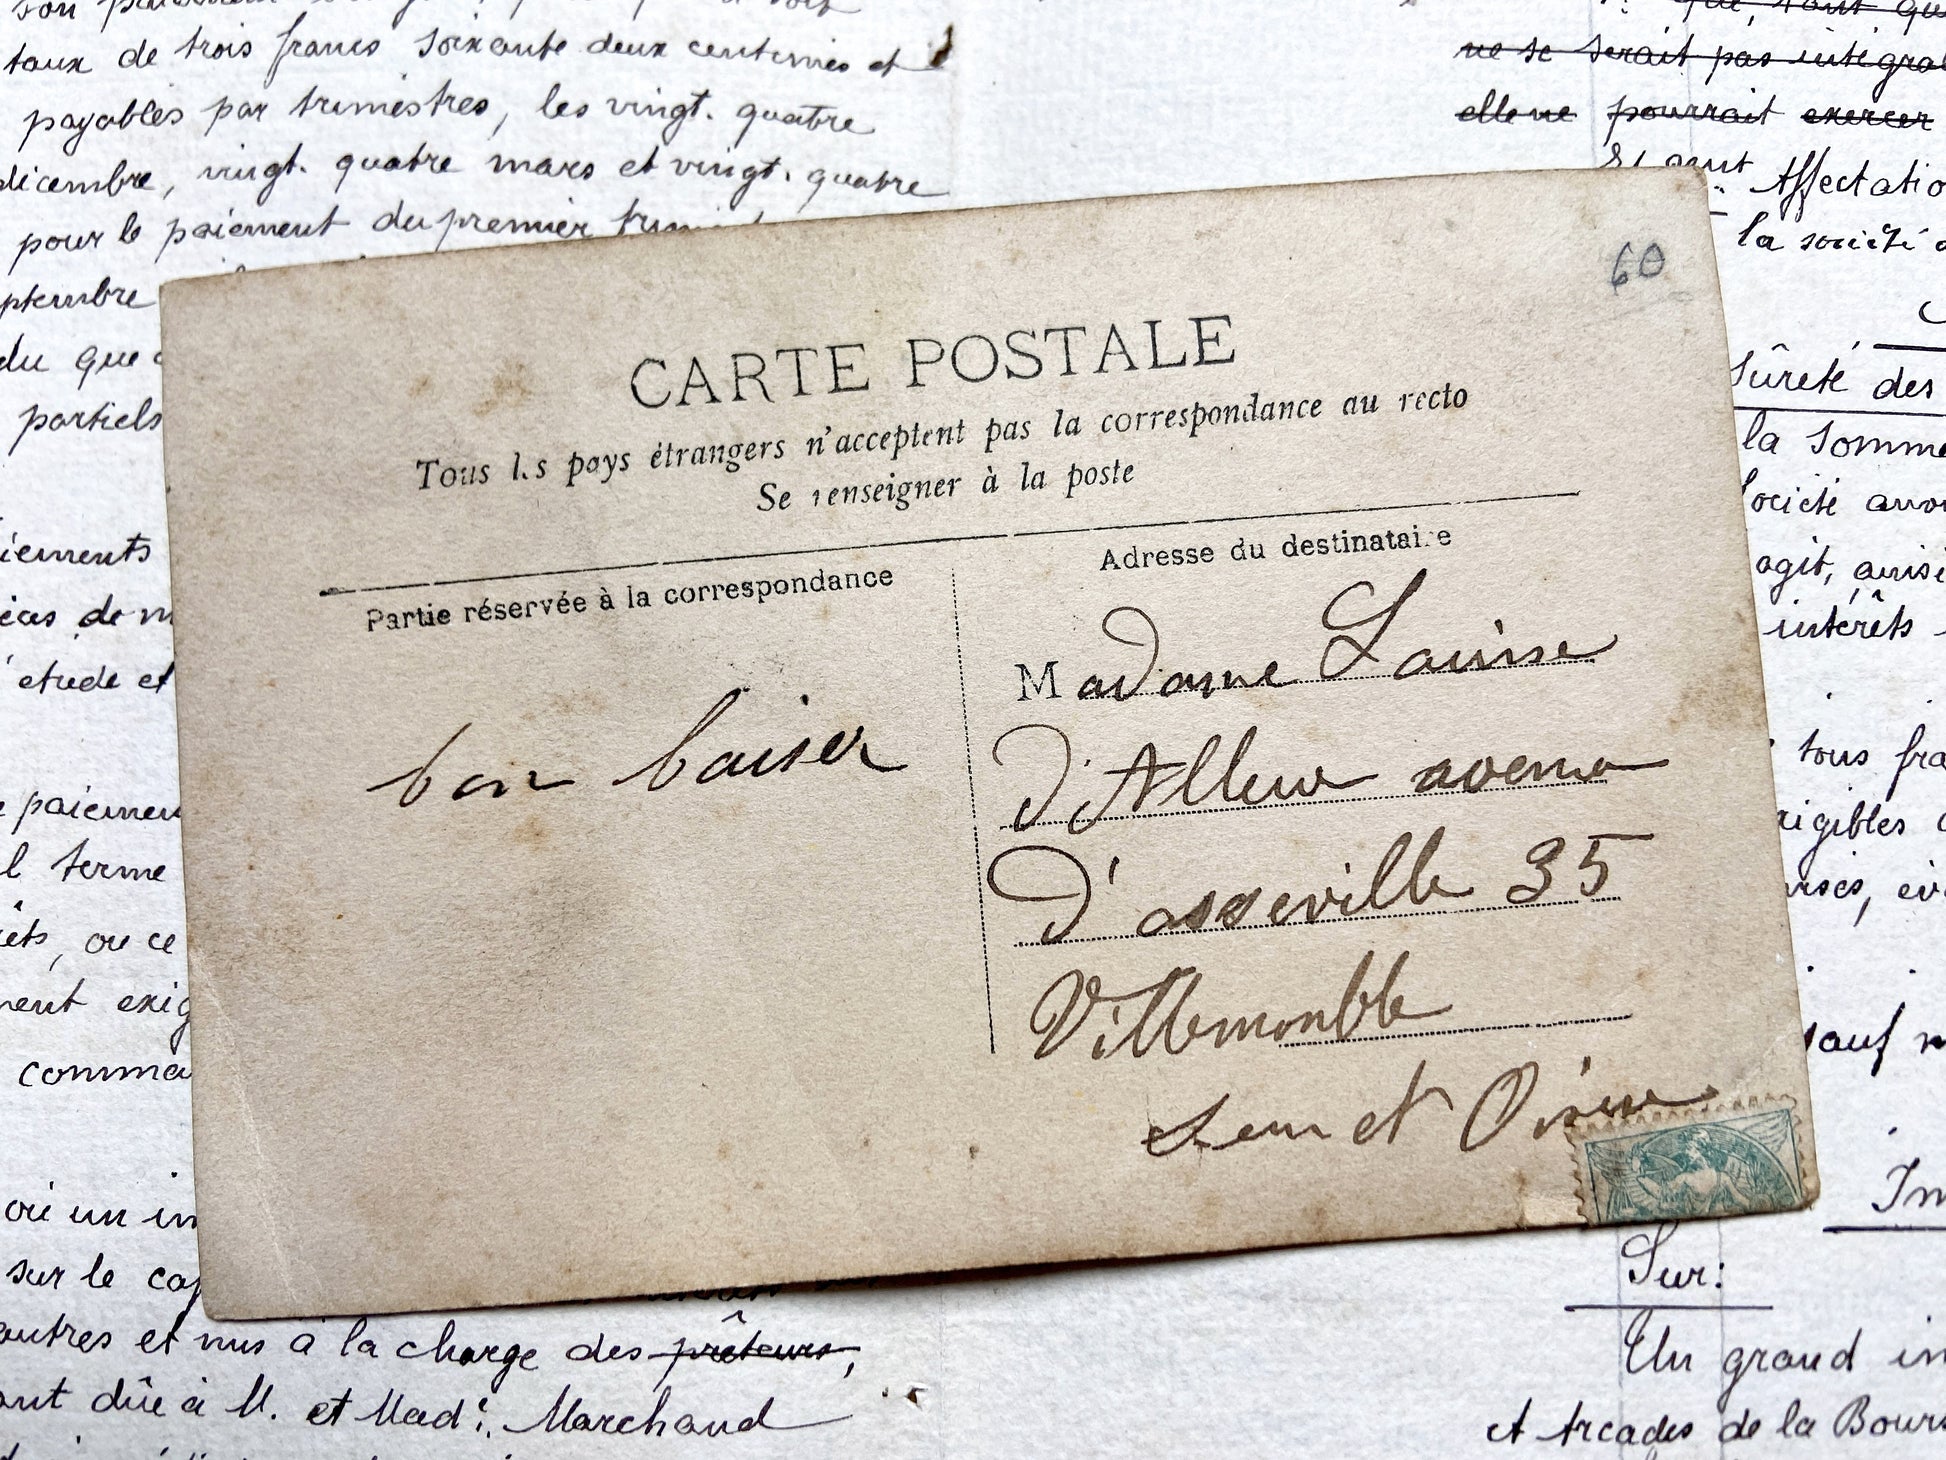 taux de trois francs soixante deux centimes et
payables par trimestres, les vingt. quatre
décembre, vingt. quatre mars et vingt. quatre
pour le paiement du premier
ptembre
du que
partiels
iements
étude et
paiemen
l terme
êts, ou ce
ment exig
comma
où un in
sur le cap
autres et mis à la charge des prêteurs,
ont dûe à M. et Mad^e. Marchand
CARTE POSTALE
Tous les pays étrangers n'acceptent pas la correspondance au recto
Se renseigner à la poste
60
Partie réservée à la correspondance
bon baiser
Adresse du destinataire
Madame Louise
d'Alleur avenue
d'osseville 35
Villemonble
et Oise
ne se serait pas intégral
elle ne pourrait exercer
Affectatio
la société
Sûreté des
la somme
société anon
agit, ainsi
intérêts
tous fra
xigibles
sauf
Im
Sur:
Un grand im
et Arcades de la Bours